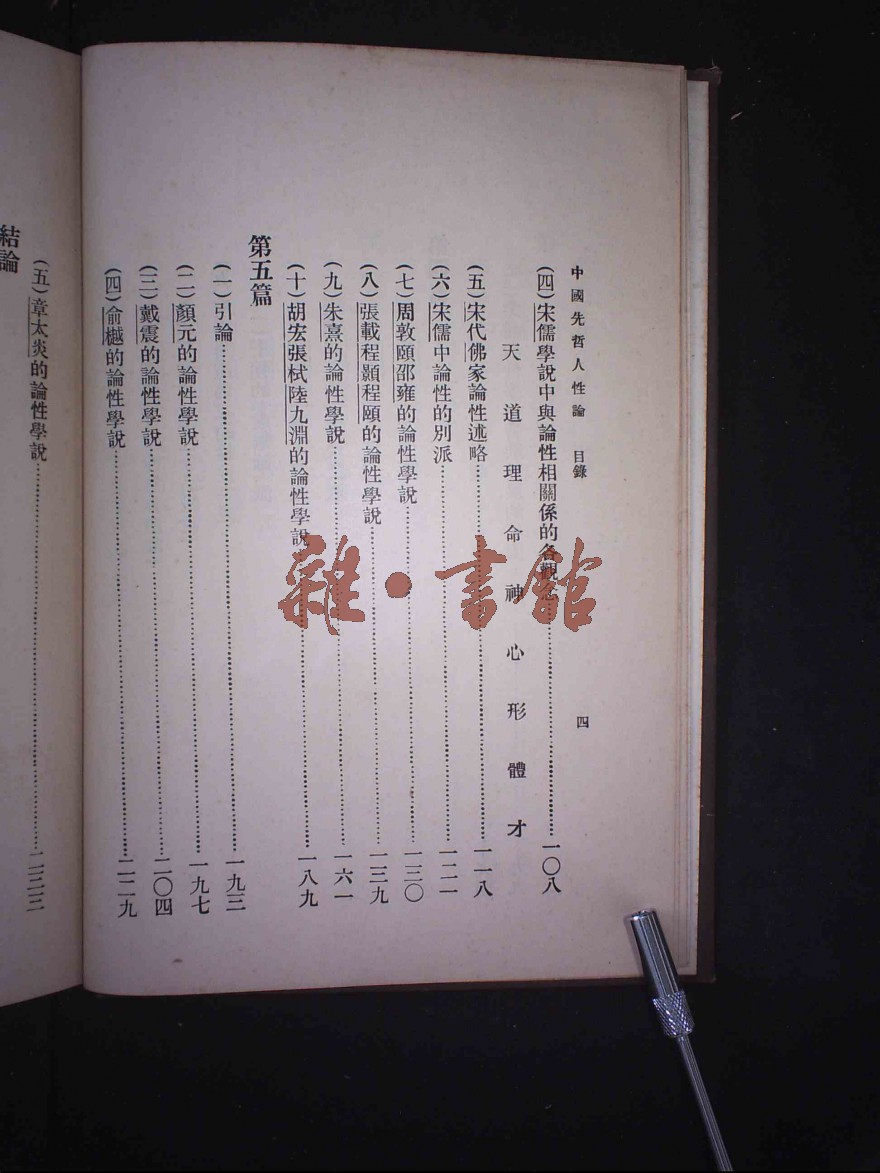 中國先哲人性論　目錄　四
(四)宋儒學說中與論性相關係的各觀念……一〇八
天道理命神心形體才
(五)宋代佛家論性述略……一一八
(六)宋儒中論性的別派……一二一
(七)周敦頤邵雍的論性學說……一三〇
(八)張載程顥程頤的論性學說……一三九
(九)朱熹的論性學說……一六一
(十)胡宏張栻陸九淵的論性學說……一八九
第五篇
(一)引論……一九三
(二)顏元的論性學說……一九七
(三)戴震的論性學說……二〇四
(四)俞樾的論性學說……二一九
(五)章太炎的論性學說……二二三
結論
雜·書館